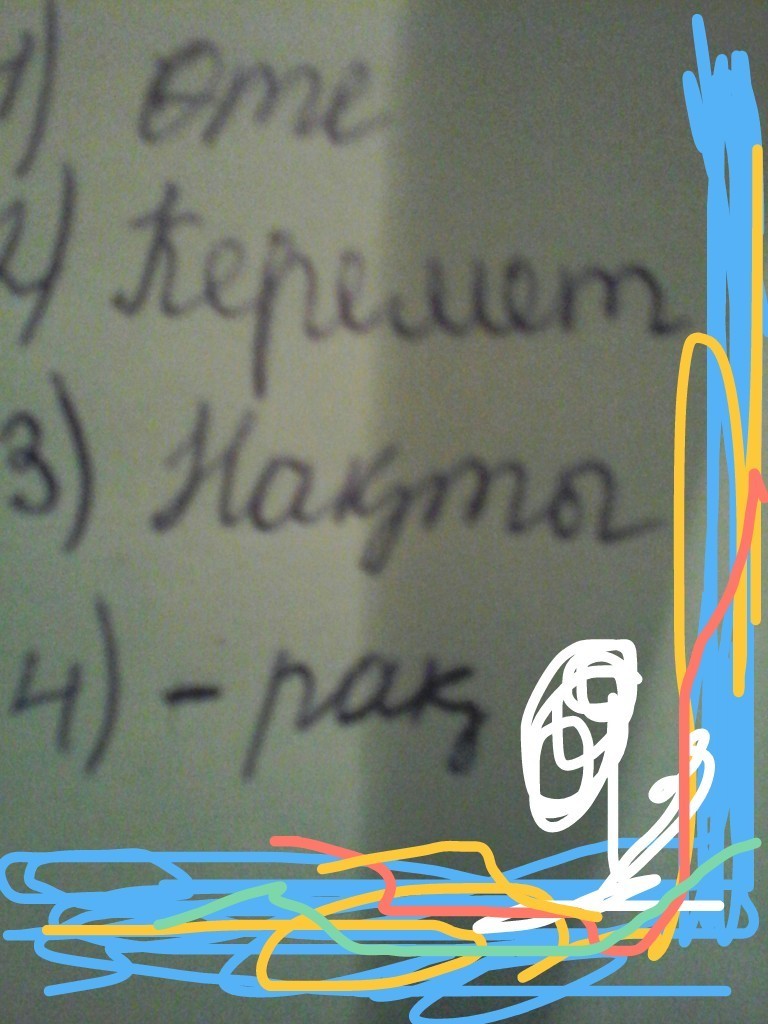 1) Өте
2) Керемет
3) Нақты
4) - рақ